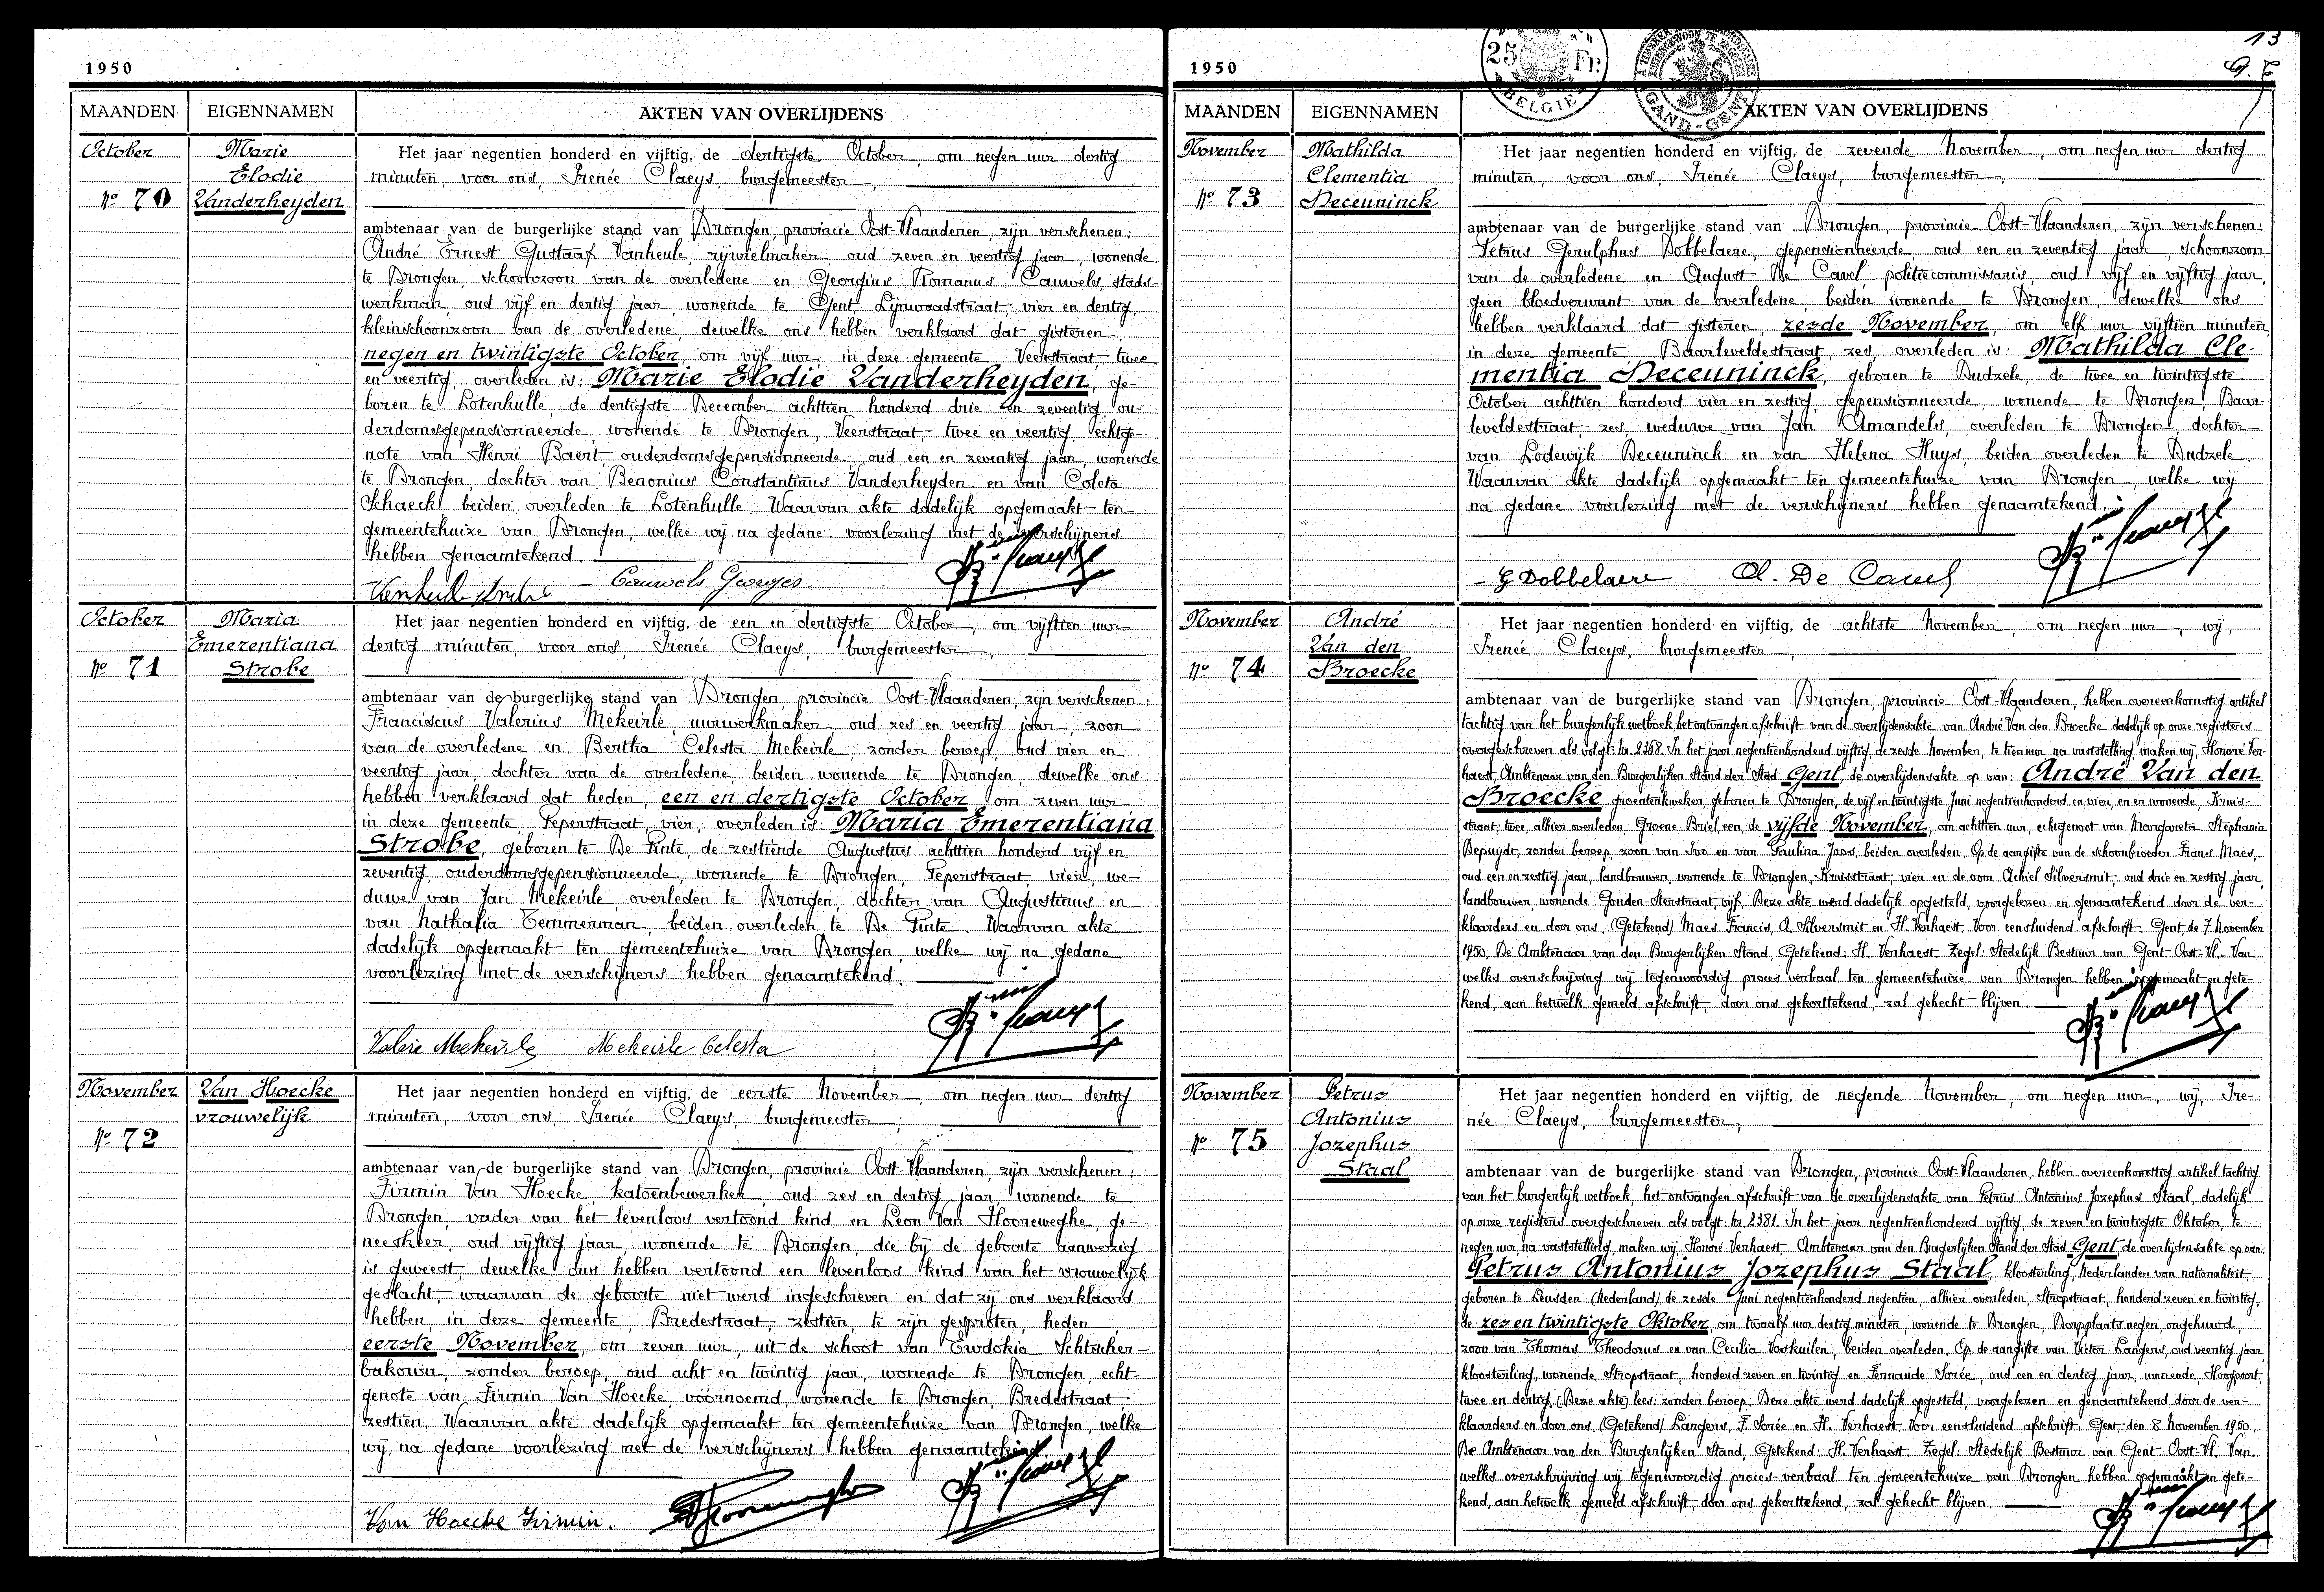 1950
MAANDEN EIGENNAMEN AKTEN VAN OVERLIJDENS
October
Nº 70
Marie
Elodie
Vanderheyden
Het jaar negentien honderd en vijftig, de dertigste October, om negen uur dertig
minuten, voor ons, Irenée Claeys, burgemeester,
ambtenaar van de burgerlijke stand van Drongen, provincie Oost-Vlaanderen, zijn verschenen:
André Ernest Gustaaf Vanheule, rijwielmaker, oud zeven en veertig jaar, wonende
te Drongen, schoonzoon van de overledene en Georgius Romanus Cauwels, stads-
werkman, oud vijf en dertig jaar, wonende te Gent, Lijnwaadstraat, vier en dertig,
kleinschoonzoon van de overledene, dewelke ons hebben verklaard dat gisteren,
negen en twintigste October, om vijf uur, in deze gemeente, Veerstraat, twee
en veertig, overleden is: Marie Elodie Vanderheyden, ge-
boren te Lotenhulle, de dertigste December achttien honderd drie en zeventig, ou-
derdomsgepensionneerde, wonende te Drongen, Veerstraat, twee en veertig, echtge-
note van Henri Baert, ouderdomsgepensionneerde, oud een en zeventig jaar, wonende
te Drongen, dochter van Benonius Constantinus Vanderheyden en van Coleta
Schaeck, beiden overleden te Lotenhulle. Waarvan akte dadelijk opgemaakt ten
gemeentehuize van Drongen, welke wij na gedane voorlezing met de verschijners
hebben genaamtekend.
Vanheule André – Cauwels Georges
October
Nº 71
Maria
Emerentiana
Strobe
Het jaar negentien honderd en vijftig, de een en dertigste October, om vijftien uur
dertig minuten, voor ons, Irenée Claeys, burgemeester,
ambtenaar van de burgerlijke stand van Drongen, provincie Oost-Vlaanderen, zijn verschenen:
Franciscus Valerius Mekeirle, uurwerkmaker, oud zes en veertig jaar, zoon
van de overledene en Bertha Celesta Mekeirle, zonder beroep, oud vier en
veertig jaar, dochter van de overledene, beiden wonende te Drongen, dewelke ons
hebben verklaard dat heden, een en dertigste October, om zeven uur
in deze gemeente, Peperstraat, vier, overleden is: Maria Emerentiana
Strobe, geboren te De Pinte, de zestiende Augustus achttien honderd vijf en
zeventig, ouderdomsgepensionneerde, wonende te Drongen, Peperstraat vier, we-
duwe van Jan Mekeirle, overleden te Drongen, dochter van Augustinus en
van Nathalia Temmerman, beiden overleden te De Pinte. Waarvan akte
dadelijk opgemaakt ten gemeentehuize van Drongen, welke wij na gedane
voorlezing met de verschijners hebben genaamtekend.
Valere Mekeirle Mekeirle Celesta
November
Nº 72
Van Hoecke
vrouwelijk
Het jaar negentien honderd en vijftig, de eerste November, om negen uur dertig
minuten, voor ons, Irenée Claeys, burgemeester,
ambtenaar van de burgerlijke stand van Drongen, provincie Oost-Vlaanderen, zijn verschenen:
Firmin Van Hoecke, katoenbewerker, oud zes en dertig jaar, wonende te
Drongen, vader van het levenloos vertoond kind en Leon Van Hooreweghe, ge-
neesheer, oud vijftig jaar, wonende te Drongen, die bij de geboorte aanwezig
is geweest, dewelke ons hebben vertoond een levenloos kind van het vrouwelijk
geslacht, waarvan de geboorte niet werd ingeschreven en dat zij ons verklaard
hebben, in deze gemeente, Bredestraat, zestien, te zijn gesproten, heden
eerste November, om zeven uur, uit de schoot van Ewdokia Schtscher-
bakowa, zonder beroep, oud acht en twintig jaar, wonende te Drongen, echt-
genote van Firmin Van Hoecke, vóórnoemd, wonende te Drongen, Bredestraat,
zestien. Waarvan akte dadelijk opgemaakt ten gemeentehuize van Drongen, welke
wij na gedane voorlezing met de verschijners hebben genaamtekend.
Van Hoecke Firmin.
13
1950
25 Fr.
BELGIË
GAND-GENT
MAANDEN EIGENNAMEN AKTEN VAN OVERLIJDENS
November
Nº 73
Mathilda
Clementia
Deceuninck
Het jaar negentien honderd en vijftig, de zevende November, om negen uur dertig
minuten, voor ons, Irenée Claeys, burgemeester,
ambtenaar van de burgerlijke stand van Drongen, provincie Oost-Vlaanderen, zijn verschenen:
Petrus Gerulphus Dobbelaere, gepensionneerde, oud een en zeventig jaar, schoonzoon
van de overledene en August De Cavel, politiecommissaris, oud vijf en vijftig jaar,
geen bloedverwant van de overledene, beiden wonende te Drongen, dewelke ons
hebben verklaard dat gisteren, zesde November, om elf uur vijftien minuten,
in deze gemeente, Baarleveldestraat, zes, overleden is: Mathilda Cle-
mentia Deceuninck, geboren te Dudzele, de twee en twintigste
October achttien honderd vier en zestig, gepensionneerde, wonende te Drongen, Baar-
leveldestraat, zes, weduwe van Jan Amandels, overleden te Drongen, dochter
van Lodewijk Deceuninck en van Helena Huys, beiden overleden te Dudzele.
Waarvan akte dadelijk opgemaakt ten gemeentehuize van Drongen, welke wij
na gedane voorlezing met de verschijners hebben genaamtekend.
- G Dobbelaere A. De Cavel
November
Nº 74
André
Van den
Broecke
Het jaar negentien honderd en vijftig, de achtste November, om negen uur, wij,
Irenée Claeys, burgemeester,
ambtenaar van de burgerlijke stand van Drongen, provincie Oost-Vlaanderen, hebben overeenkomstig artikel
tachtig van het burgerlijk wetboek, het ontvangen afschrift van de overlijdensakte van André Van den Broecke dadelijk op onze registers
overgeschreven als volgt: Nr. 2368. In het jaar negentienhonderd vijftig, de zesde November, te tien uur na vaststelling, maken wij, Honoré Ver-
haest, Ambtenaar van den Burgerlijken Stand der Stad Gent, de overlijdensakte op van: André Van den
Broecke, groentenkweker, geboren te Drongen, de vijf en twintigste Juni negentienhonderd en vier, en er wonende, Kruis-
straat, twee, alhier overleden, Groene Briel, een, de vijfde November, om achttien uur, echtgenoot van Margareta Stephania
Depuydt, zonder beroep, zoon van Ivo en van Paulina Joos, beiden overleden. Op de aangifte van de schoonbroeder Frans Maes,
oud een en zestig jaar, landbouwer, wonende te Drongen, Kruisstraat, vier en de oom Achiel Silversmit, oud drie en zestig jaar,
landbouwer, wonende Gouden-Sterstraat, vijf. Deze akte werd dadelijk opgesteld, voorgelezen en genaamtekend door de ver-
klaarders en door ons. (Getekend) Maes Francis, A. Silversmit en H. Verhaest. Voor eensluidend afschrift. Gent, de 7 November
1950. De Ambtenaar van den Burgerlijken Stand, Getekend: H. Verhaest. Zegel: Stedelijk Bestuur van Gent. Oost-Vl. Van
welks overschrijving wij tegenwoordig proces verbaal ten gemeentehuize van Drongen hebben opgemaakt en gete-
kend, aan hetwelk gemeld afschrift, door ons gekorttekend, zal gehecht blijven.
November
Nº 75
Petrus
Antonius
Jozephus
Staal
Het jaar negentien honderd en vijftig, de negende November, om negen uur, wij, Ire-
née Claeys, burgemeester,
ambtenaar van de burgerlijke stand van Drongen, provincie Oost-Vlaanderen, hebben overeenkomstig artikel tachtig
van het burgerlijk wetboek, het ontvangen afschrift van de overlijdensakte van Petrus Antonius Jozephus Staal, dadelijk
op onze registers overgeschreven als volgt: Nr. 2381. In het jaar negentienhonderd vijftig, de zeven en twintigste Oktober, te
negen uur na vaststelling, maken wij, Honoré Verhaest, Ambtenaar van den Burgerlijken Stand der Stad Gent, de overlijdensakte op van:
Petrus Antonius Jozephus Staal, kloosterling, Nederlander van nationaliteit,
geboren te Leusden (Nederland) de zesde Juni negentienhonderd negentien, alhier overleden, Stropstraat, honderd zeven en twintig,
de zes en twintigste Oktober, om twaalf uur dertig minuten, wonende te Drongen, Dorpplaats negen, ongehuwd,
zoon van Thomas Theodorus en van Cecilia Voskuilen, beiden overleden. Op de aangifte van Victor Langers, oud veertig jaar,
kloosterling, wonende Stropstraat, honderd zeven en twintig en Fernande Sorée, oud een en dertig jaar, wonende, Hoogpoort,
twee en dertig. (Deze akte) lees: zonder beroep. Deze akte werd dadelijk opgesteld, voorgelezen en genaamtekend door de ver-
klaarders en door ons. (Getekend) Langers, F. Sorée en H. Verhaest. Voor eensluidend afschrift. Gent, den 8 November 1950.
De Ambtenaar van den Burgerlijken Stand, Getekend: H. Verhaest. Zegel: Stedelijk Bestuur van Gent. Oost-Vl. Van
welks overschrijving wij tegenwoordig proces-verbaal ten gemeentehuize van Drongen hebben opgemaakt en gete-
kend, aan hetwelk gemeld afschrift, door ons gekorttekend, zal gehecht blijven.